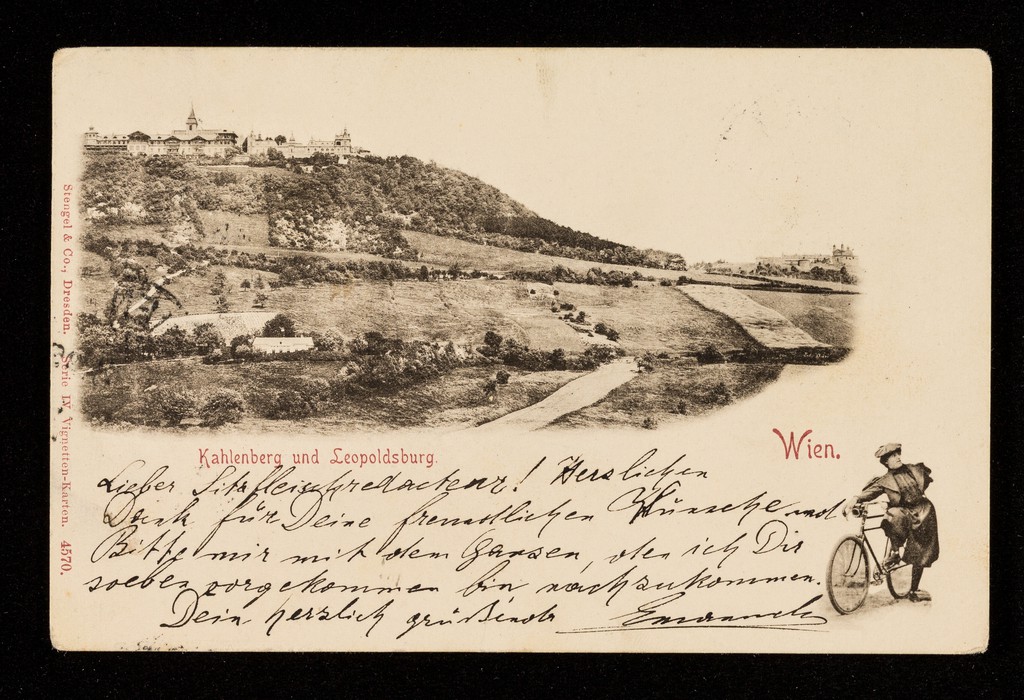 Stengel & Co., Dresden. Serie IV. Vignetten-Karten. 4570.
Kahlenberg und Leopoldsburg.
Wien.
Lieber Sitzfleischredacteur! Herzlichen
Dank für Deine freundlichen Wünsche und
Bitte mir mit dem Ganzen, den ich Dir
soeben vorgekommen bin nachzukommen.
Dein herzlich grüßender Emanuel